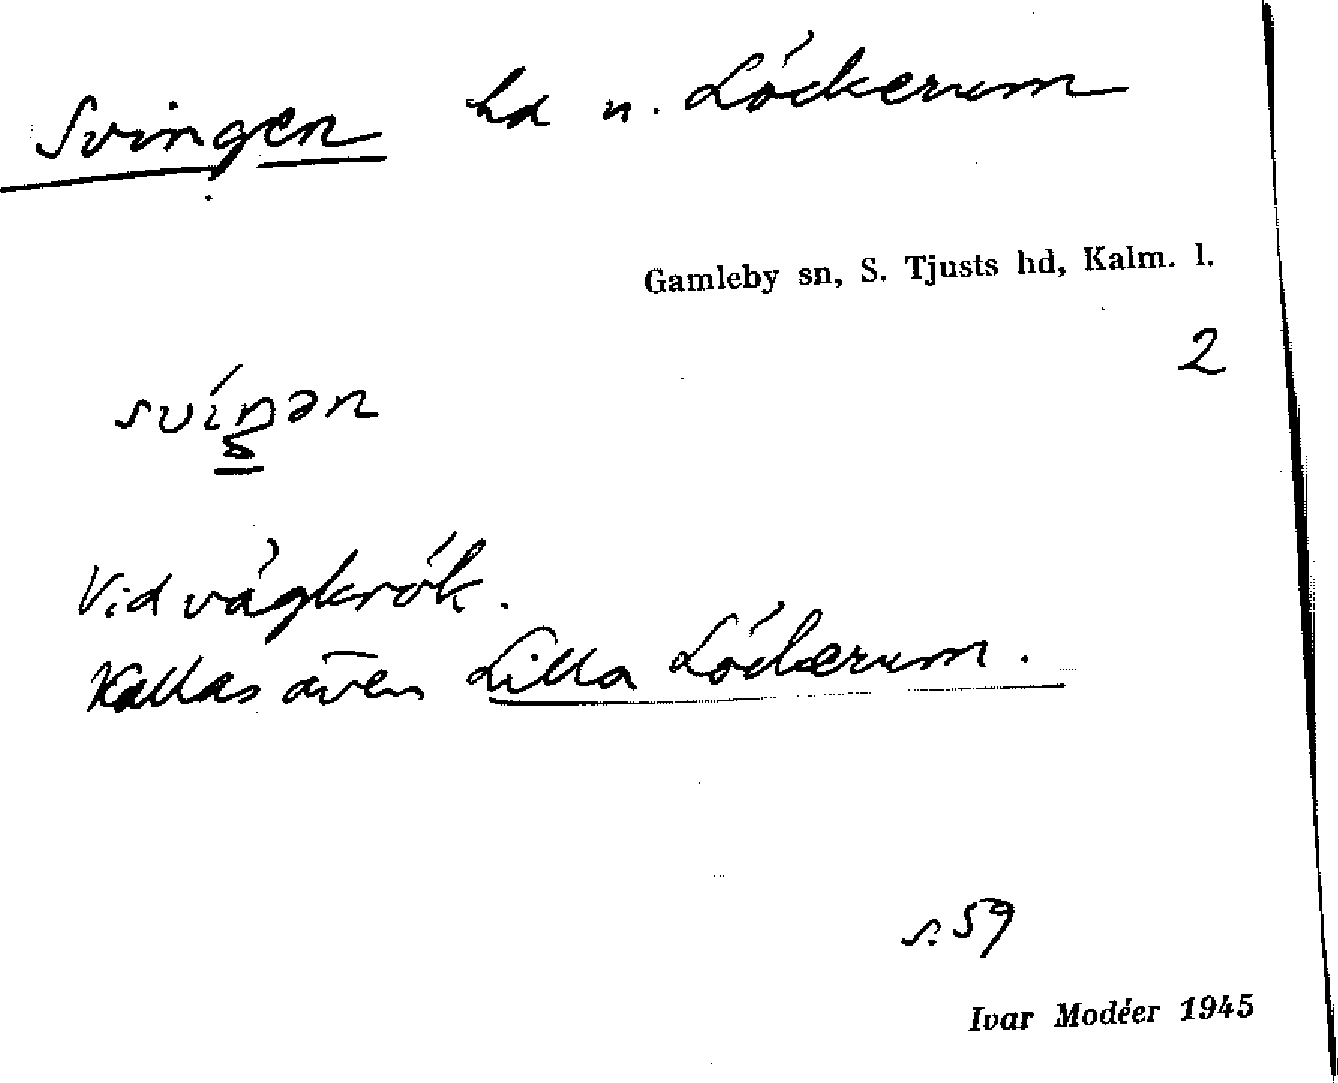 Svingen hd n. Löckerum
Gamleby sn, S. Tjusts hd, Kalm. l.
2
Vid vägkrök.
Kallas även Lilla Löckerum.
s. 59
Ivar Modéer 1945